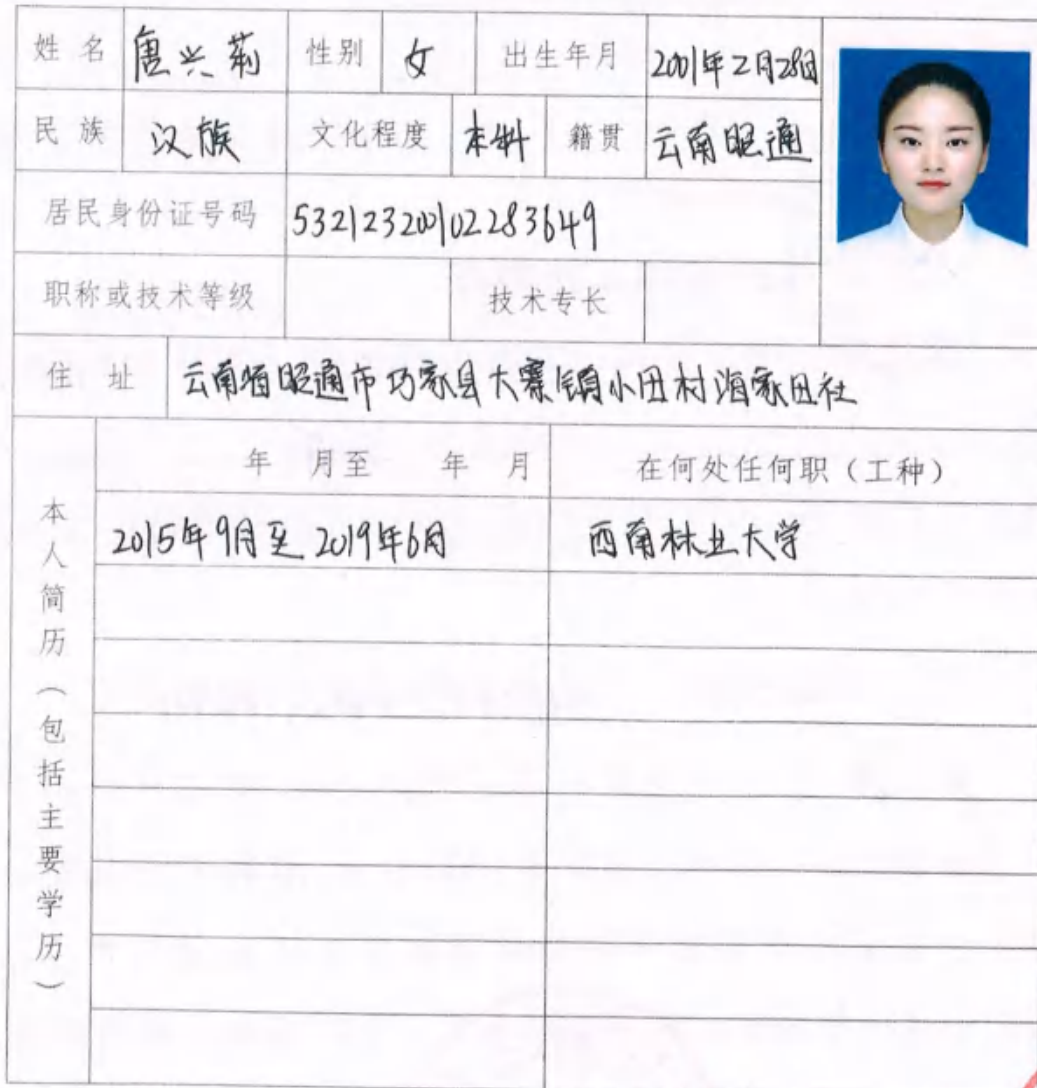 姓名 唐兴莉 性别 女 出生年月 2001年2月28日
民族 汉族 文化程度 本科 籍贯 云南昭通
居民身份证号码 532123200102283649
职称或技术等级 技术专长
住址 云南省昭通市巧家县大寨镇小田村海家田社
本人简历（包括主要学历）
年 月至 年 月 在何处任何职（工种）
2015年9月至2019年6月 西南林业大学